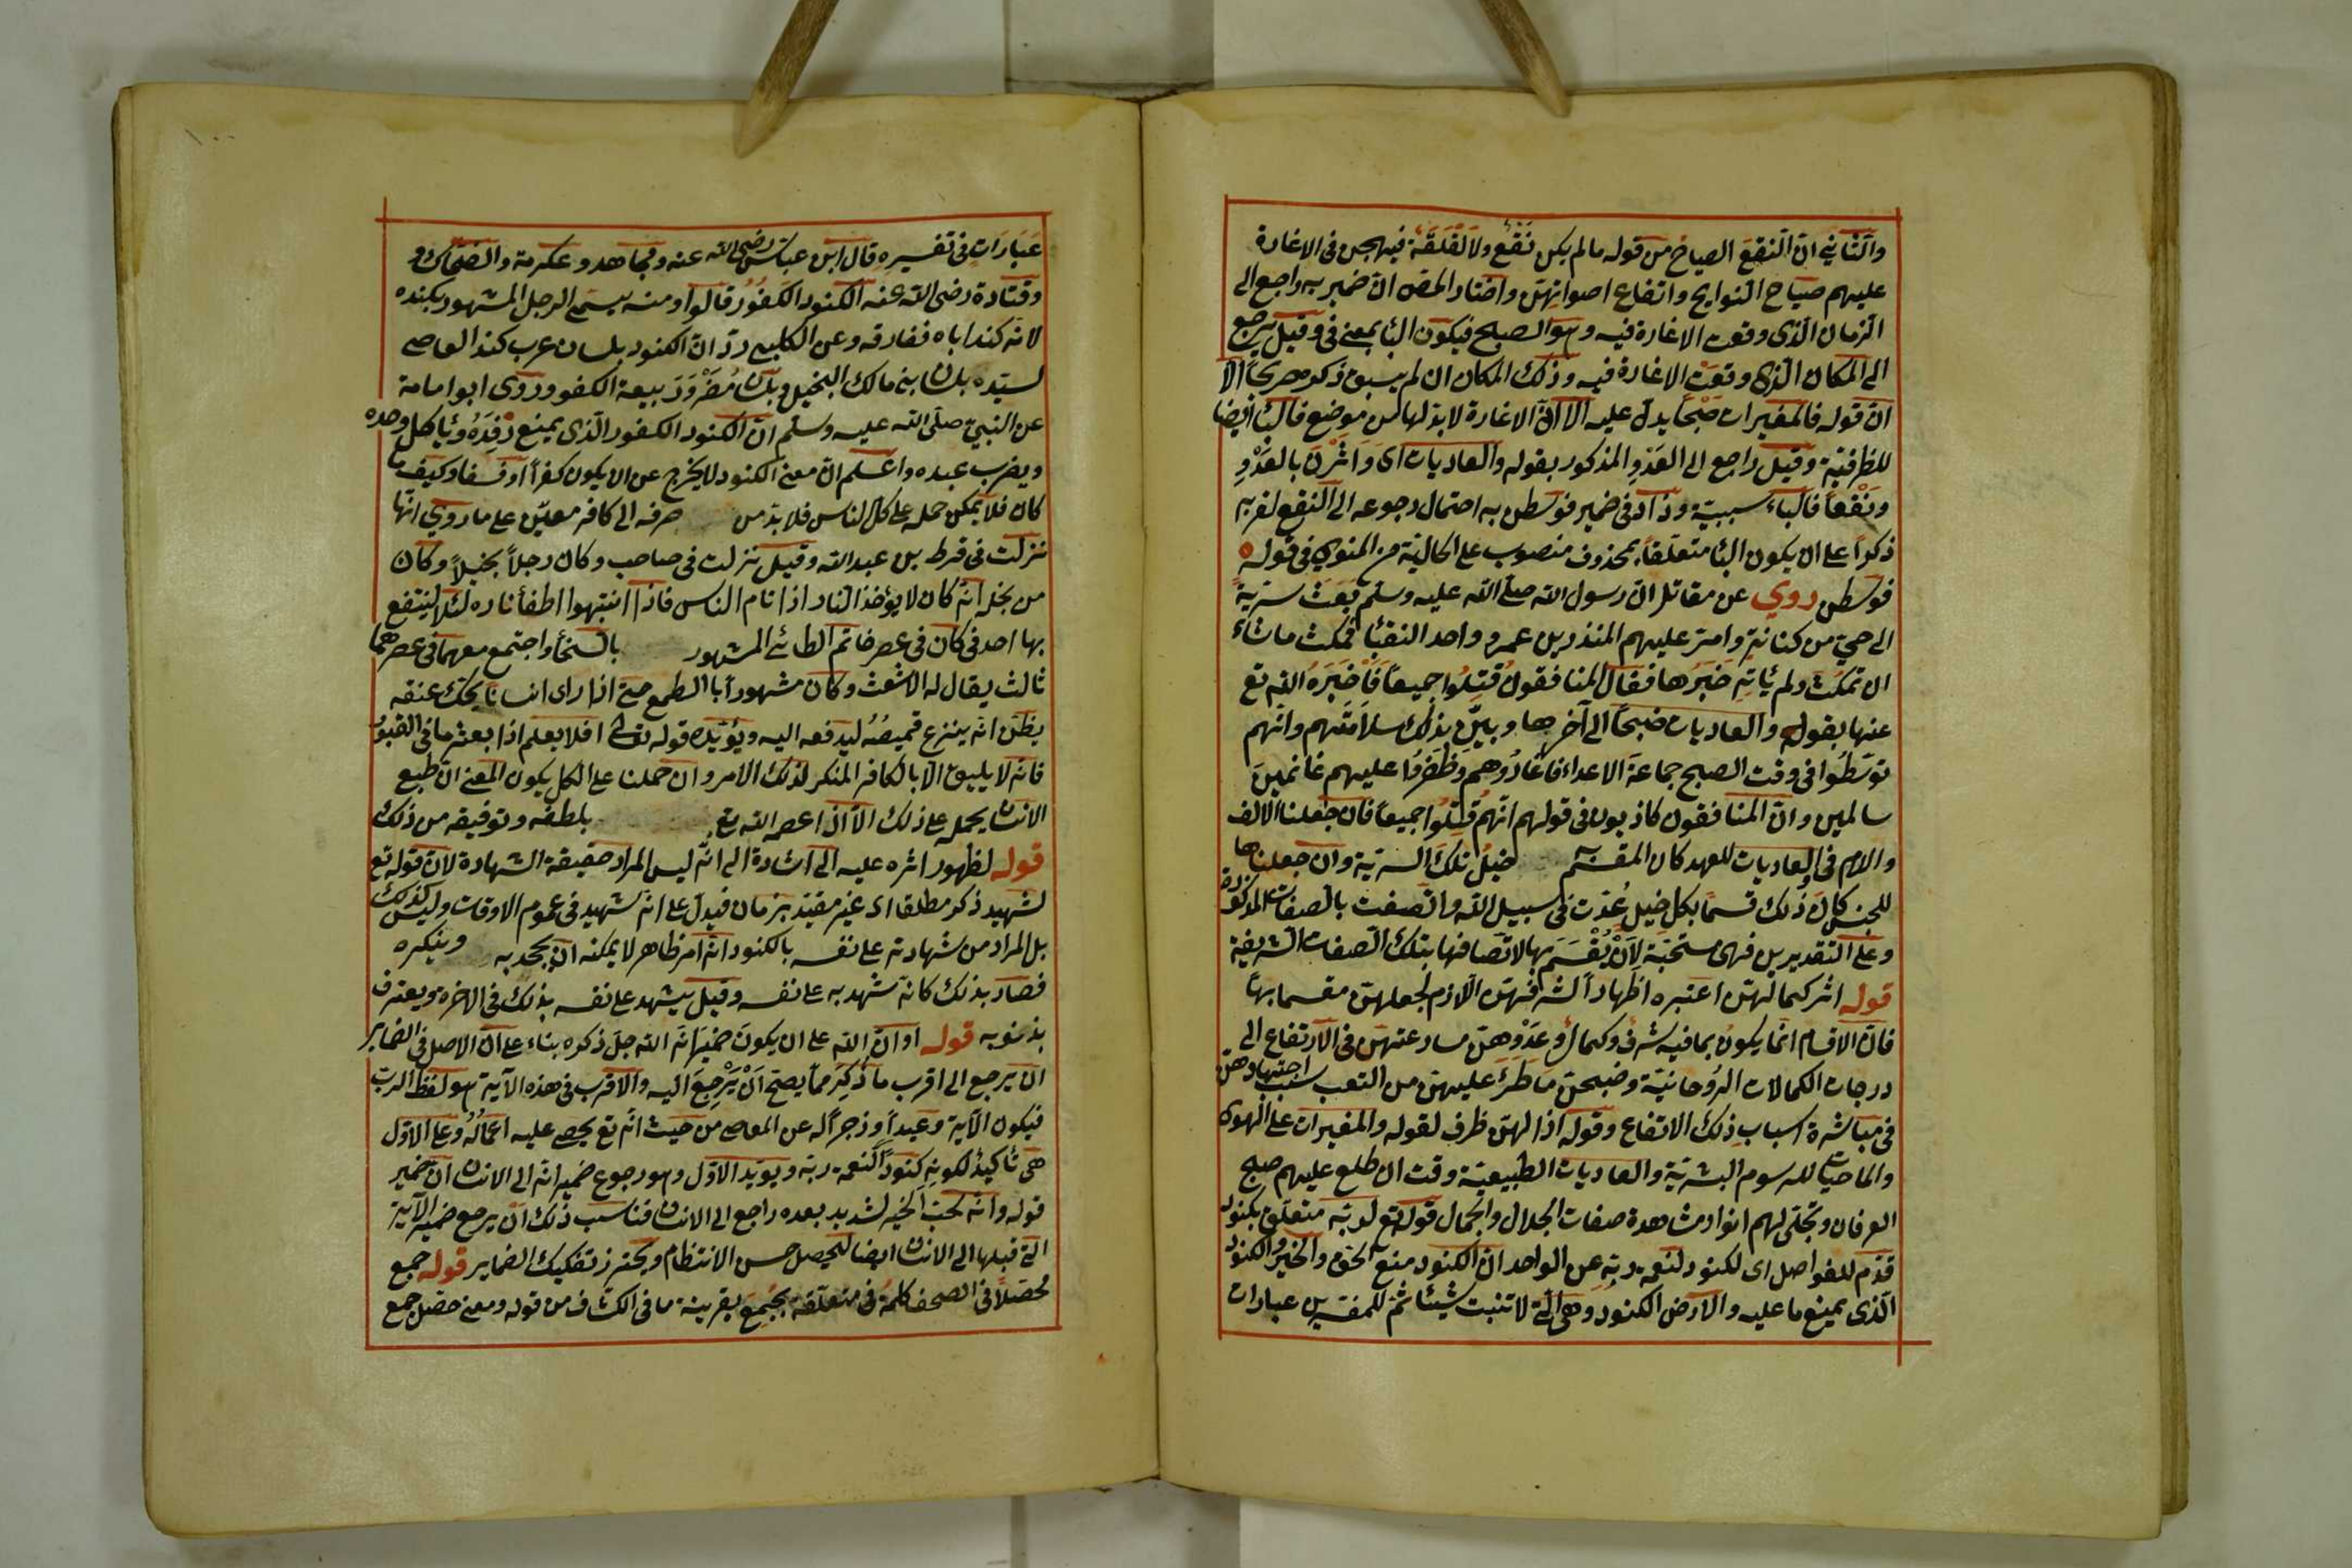 والثاني انّ النقع الصياح من قوله مالم يكن نَقْع ولا لَقْلَقَة فيهجن في الاغارة
عليهم صياح النوايح وارتفاع اصواتهنّ واختار المص انّ ضمير به راجع الى
الزمان الّذى وقوت الاغارة فيه وهو الصبح فيكون البا بمعنى فى وقيل يرجع
الى المكان الّذى وقعت الاغارة فيه وذلك المكان ان لم يسبق ذكره صريحا الا
انّ قوله فالمغيرات صُبْحًا يدلّ عليه الا انّ الاغارة لا بدّ لها من موضع فالبا ايضا
للظرفيّة وقيل راجع الى العَدْوِ المذكور بقوله والعاديات اى وَاَثَرْنَ بالعَدْوِ
ونَقْعاً فالباء سببيّة وزاد فى ضمير فوسطن به احتمال رجوعه الى النقع لقربه
ذكراً على ان يكون البا متعلّقا بمحذوف منصوب على الحاليّة من المنوى فى قوله
فوسطن روي عن مقاتل انّ رسول الله صلّى الله عليه وسلّم بَعَثَ سريّةً
الى حىّ من كنانة وامّر عليهم المنذر بن عمرو واحد النقبا فمكث ماشاء
ان تمكث ولم يأته خَبَرُها فقال المنافقون قُتِلُوا جميعاً فَاَخْبَرَهُ الله تع
عنها بقوله والعاديات ضبحاً الى آخرها وبيّن بذلك سلامَتَهم وانّهم
توسّطُوا فى وقت الصبح جماعَةَ الاعداء فاغارُوهم وظَفَرُوا عليهم غانمين
سالمين وانّ المنافقون كاذبون فى قولهم انّهم قُتِلُوا جميعاً فان جعلنا الالف
والام فى العاديات للعهد كان المقسَم خيلُ تلك السريّة وان جعلناها
للجنس كان ذلك قسمًا بكل خيل عُدَت فى سبيل الله واتّصفت بالصفات المذكورة
وعلى التقديرين فهى مستحَبّة لِاَنْ يُقْسَمَ بها لاتّصافها بتلك الصفات الشريفة
قوله اثر كمالهنّ اعتبره اظهاراً لشرفهنّ اللازم لجعلهنّ مقسما بها
فانّ الاقسام انّما يكون بما فيه شرف وكمال وعَدْوهنّ مسارعتهنّ فى الارتفاع الى
درجات الكمالات الرُوحانيّة وضبحهنّ ماطَرَءَ عليهنّ من التعب بسبب اجتهادهن
فى مباشرة اسباب ذلك الاتفاع وقوله اذا لهنّ ظرف لقوله والمغيرات على الهوى
والماحيات للرسوم البشريّة والعاديات الطبيعيّة وقت ان طلع عليهم صبح
العرفان وتجلّى لهم انوار مشاهدة صفات الجلال والجمال قوله تع لربّه متعلّق بكنود
قدّم للفواصل اى لكنود لنعمة ربّه عن الواحد انّ الكنود منع الحقّ والخير والكنود
الّذى يمنع ما عليه والارض الكنود وهى الّتى لا تنبت شيئا ثمّ للمفسّرين عبارات
عَبَارَات فى تفسيره قال ابن عباس رضى الله عنه ومجاهد وعكرمة والضحاك و
وقتادة رضى الله عنه الكنود الكفُورُ قالوا ومنه يسمّى الرجل المشهور بكنده
لانه كند اباه ففارقه وعن الكلبى انّ الكنود بلسان عرب كند العاصى
لسيّده بلسان بنى مالك البخيل وبلسان مُضَرْ وَرَبيعة الكفور وروى ابو امامة
عن النبىّ صلّى الله عليه وسلّم انّ الكنود الكفور الّذى يمنع رِفْدَهُ ويأكل وحده
ويضرب عبده واعلم انّ معنى الكنود لا يخرج عن ان يكون كفراً او فسقا وكيف ما
كان فلا يمكن حمله على كل الناس فلا بدّ من صرفه الى كافر معيّن على ما روي انّها
نزلت فى قرط بن عبد الله وقيل نزلت فى صاحب وكان رجلاً بخيلاً وكان
من بخله انّه كان لا يؤخذ النار اذا نام الناس فاذا انتبهوا اطفأ ناره لئلا ينتفع
بها احد فى كان فى عصر خاتم الطائى المشهور بالسخا واجتمع معهما فى عصرهما
ثالث يقال له الاشعث وكان مشهوراً با الطمع حتى اذا راى انسانا يحكّ عنقه
يظنّ انّه ينزع قميصُهُ ليدفعه اليه ويؤيّده قوله تعالى افلا يعلم اذا بعثر ما فى القبور
فانّه لا يليق الّا بالكافر المنكر لذلك الامر وان حملنا على الكل يكون المعنى انّ طبع
الانسان يحمله على ذلك الّا اذا عصمه الله تع بلطفه وتوفيقه من ذلك
قوله لظهور اثره عليه الى اشارة الى انّه ليس المراد حقيقة الشهادة لانّ قوله تع
لشهيد ذكر مطلقا اى غير مقيّد بزمان فيدلّ على انّه شهيد فى عموم الاوقات وليس كذلك
بل المراد من شهادته على نفسه بالكنود انّه امر ظاهر لا يمكنه ان يجحد به وينكره
فصار بذلك كانّه شهد به على نفسه وقيل يشهد على نفسه بذلك فى الاخرة ويعترف
بذنوبه قوله او انّ الله على ان يكون ضميرَ انّه الله جلّ ذكره بناء على انّ الاصل فى الضماير
ان يرجع الى اقرب ما ذُكِرَ ممّا يصحّ اَنْ يَرْجِعَ اليه والاقرب فى هذه الآية هو لفظ الربّ
فيكون الآية وعيداً وزجراً له عن المعاصى من حيث انّه تع يحصى عليه اعمالُهُ وعلى الاوّل
هى تأكيدٌ لكونه كنوداً لنعمة ربّه ويويّد الاوّل وهو رجوع ضمير انّه الى الانسان انّ ضمير
قوله وانّه لحبّ الخير لشديد بعده راجع الى الانسان فناسب ذلك انْ يرجع ضمير الآية
الّتى قبلها الى الانسان ايضا ليحصل حسن الانتظام ويحترز تفكيك الضماير قوله جمع
محصّلاً فى الصحف كلمةُ فى متعلّقة بجُمِعَ بقرينة ما فى الكشّاف من قوله ومعنى حصّل جمع